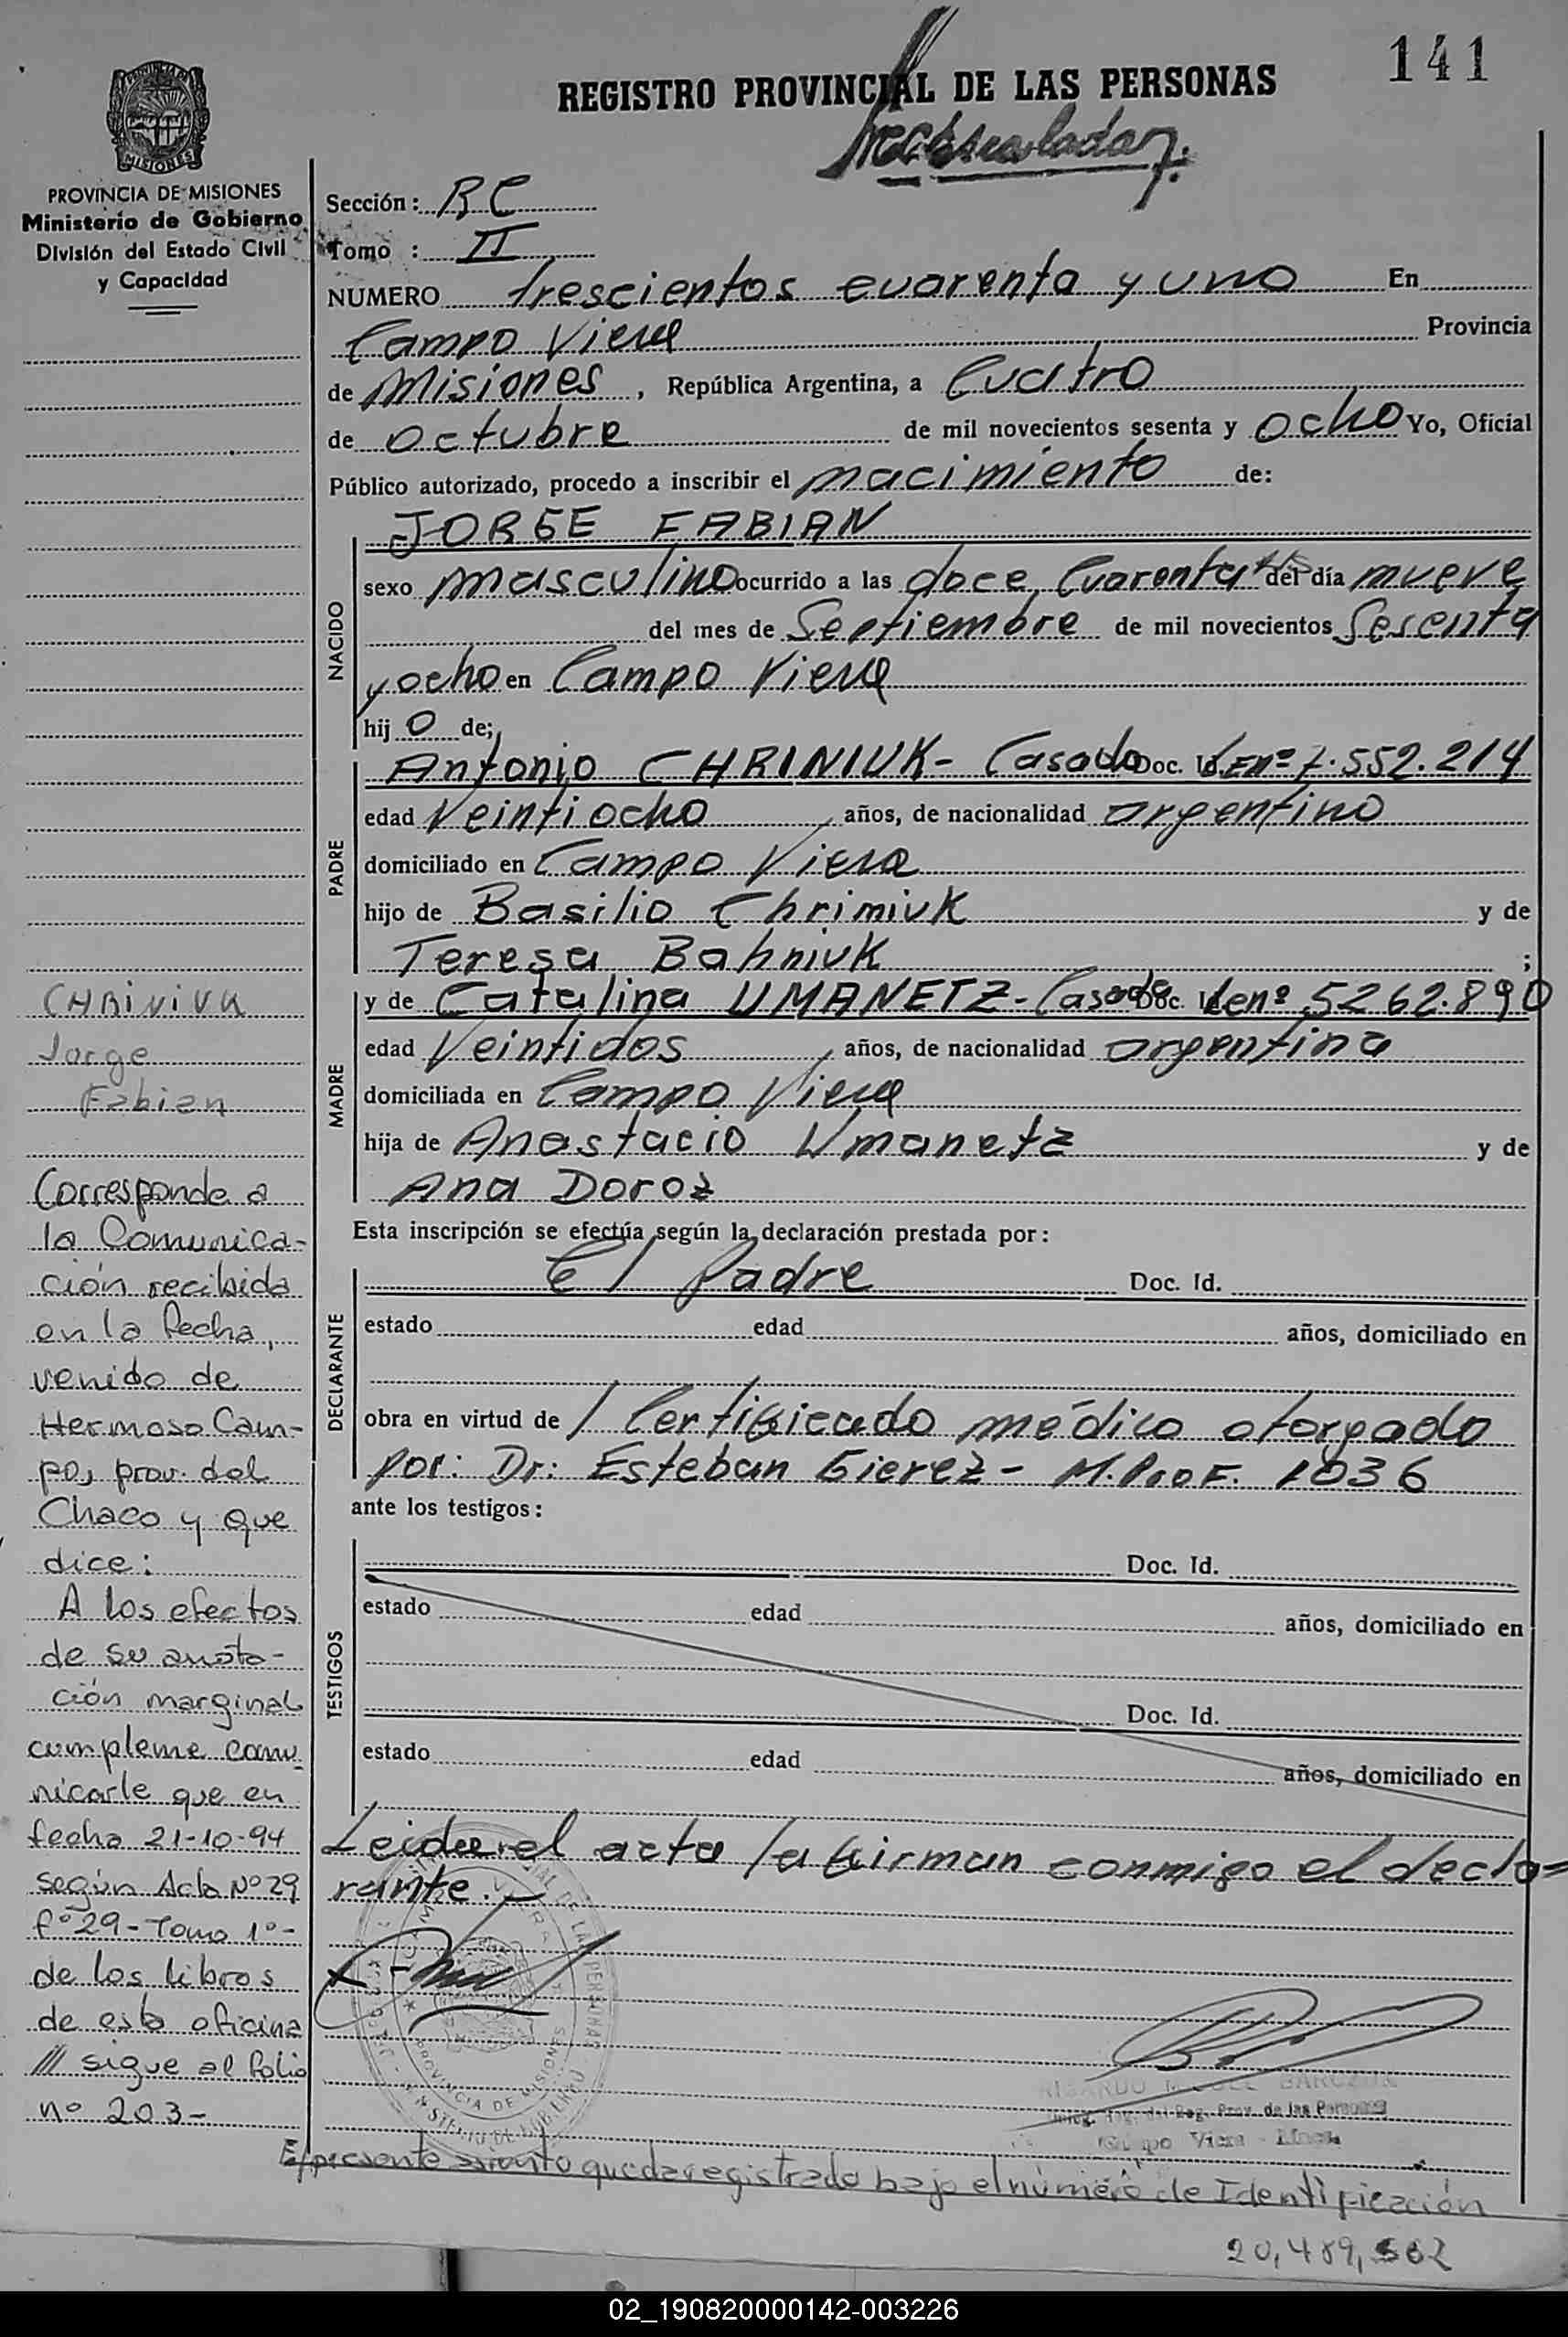 141
REGISTRO PROVINCIAL DE LAS PERSONAS
PROVINCIA DE MISIONES
MISIONES
PROVINCIA DE MISIONES
Ministerio de Gobierno
División del Estado Civil
y Capacidad
Sección: RC
Tomo : II
NUMERO trescientos cuarenta y uno En
Campo Viera Provincia
de Misiones, República Argentina, a Cuatro
de octubre de mil novecientos sesenta y ocho Yo, Oficial
Público autorizado, procedo a inscribir el nacimiento de:
NACIDO
JORGE FABIAN
sexo masculino ocurrido a las doce, Cuarenta hs del día nueve
del mes de Septiembre de mil novecientos Sesenta
y ocho en Campo Viera
hij o de;
PADRE
Antonio CHRINIUK - Casado Doc. Id. LE nº 7.552.214
edad Veintiocho años, de nacionalidad argentino
domiciliado en Campo Viera
hijo de Basilio Chriniuk y de
Teresa Bahniuk ;
MADRE
y de Catalina UMANETZ - Casada Doc. Id. Lc nº 5262.890
edad Veintidos años, de nacionalidad argentina
domiciliada en Campo Viera
hija de Anastacio Umanetz y de
Ana Doroz
Esta inscripción se efectúa según la declaración prestada por:
DECLARANTE
El Padre Doc. Id.
estado edad años, domiciliado en
obra en virtud de / Certificado médico otorgado
por: Dr: Esteban Gierez - M. Prof. 1036
ante los testigos:
TESTIGOS
Doc. Id.
estado edad años, domiciliado en
Doc. Id.
estado edad años, domiciliado en
Leida el acta la firman conmigo el decla=
rante.-
CHRINIUK
Jorge
Fabian
Corresponde a
la Comunica-
ción recibida
en la fecha,
venido de
Hermoso Cam-
po, prov. del
Chaco y que
dice:
A los efectos
de su anota-
ción marginal
cumpleme comu-
nicarle que en
fecha 21-10-94
según Acta Nº 29
fº 29 - Tomo 1º -
de los libros
de esta oficina
/// sigue al folio
nº 203 -
PROVINCIA DE MISIONES
Campo Viera - Mnes.
El presente asiento queda registrado bajo el número de Identificación
20,489,562
02_190820000142-003226